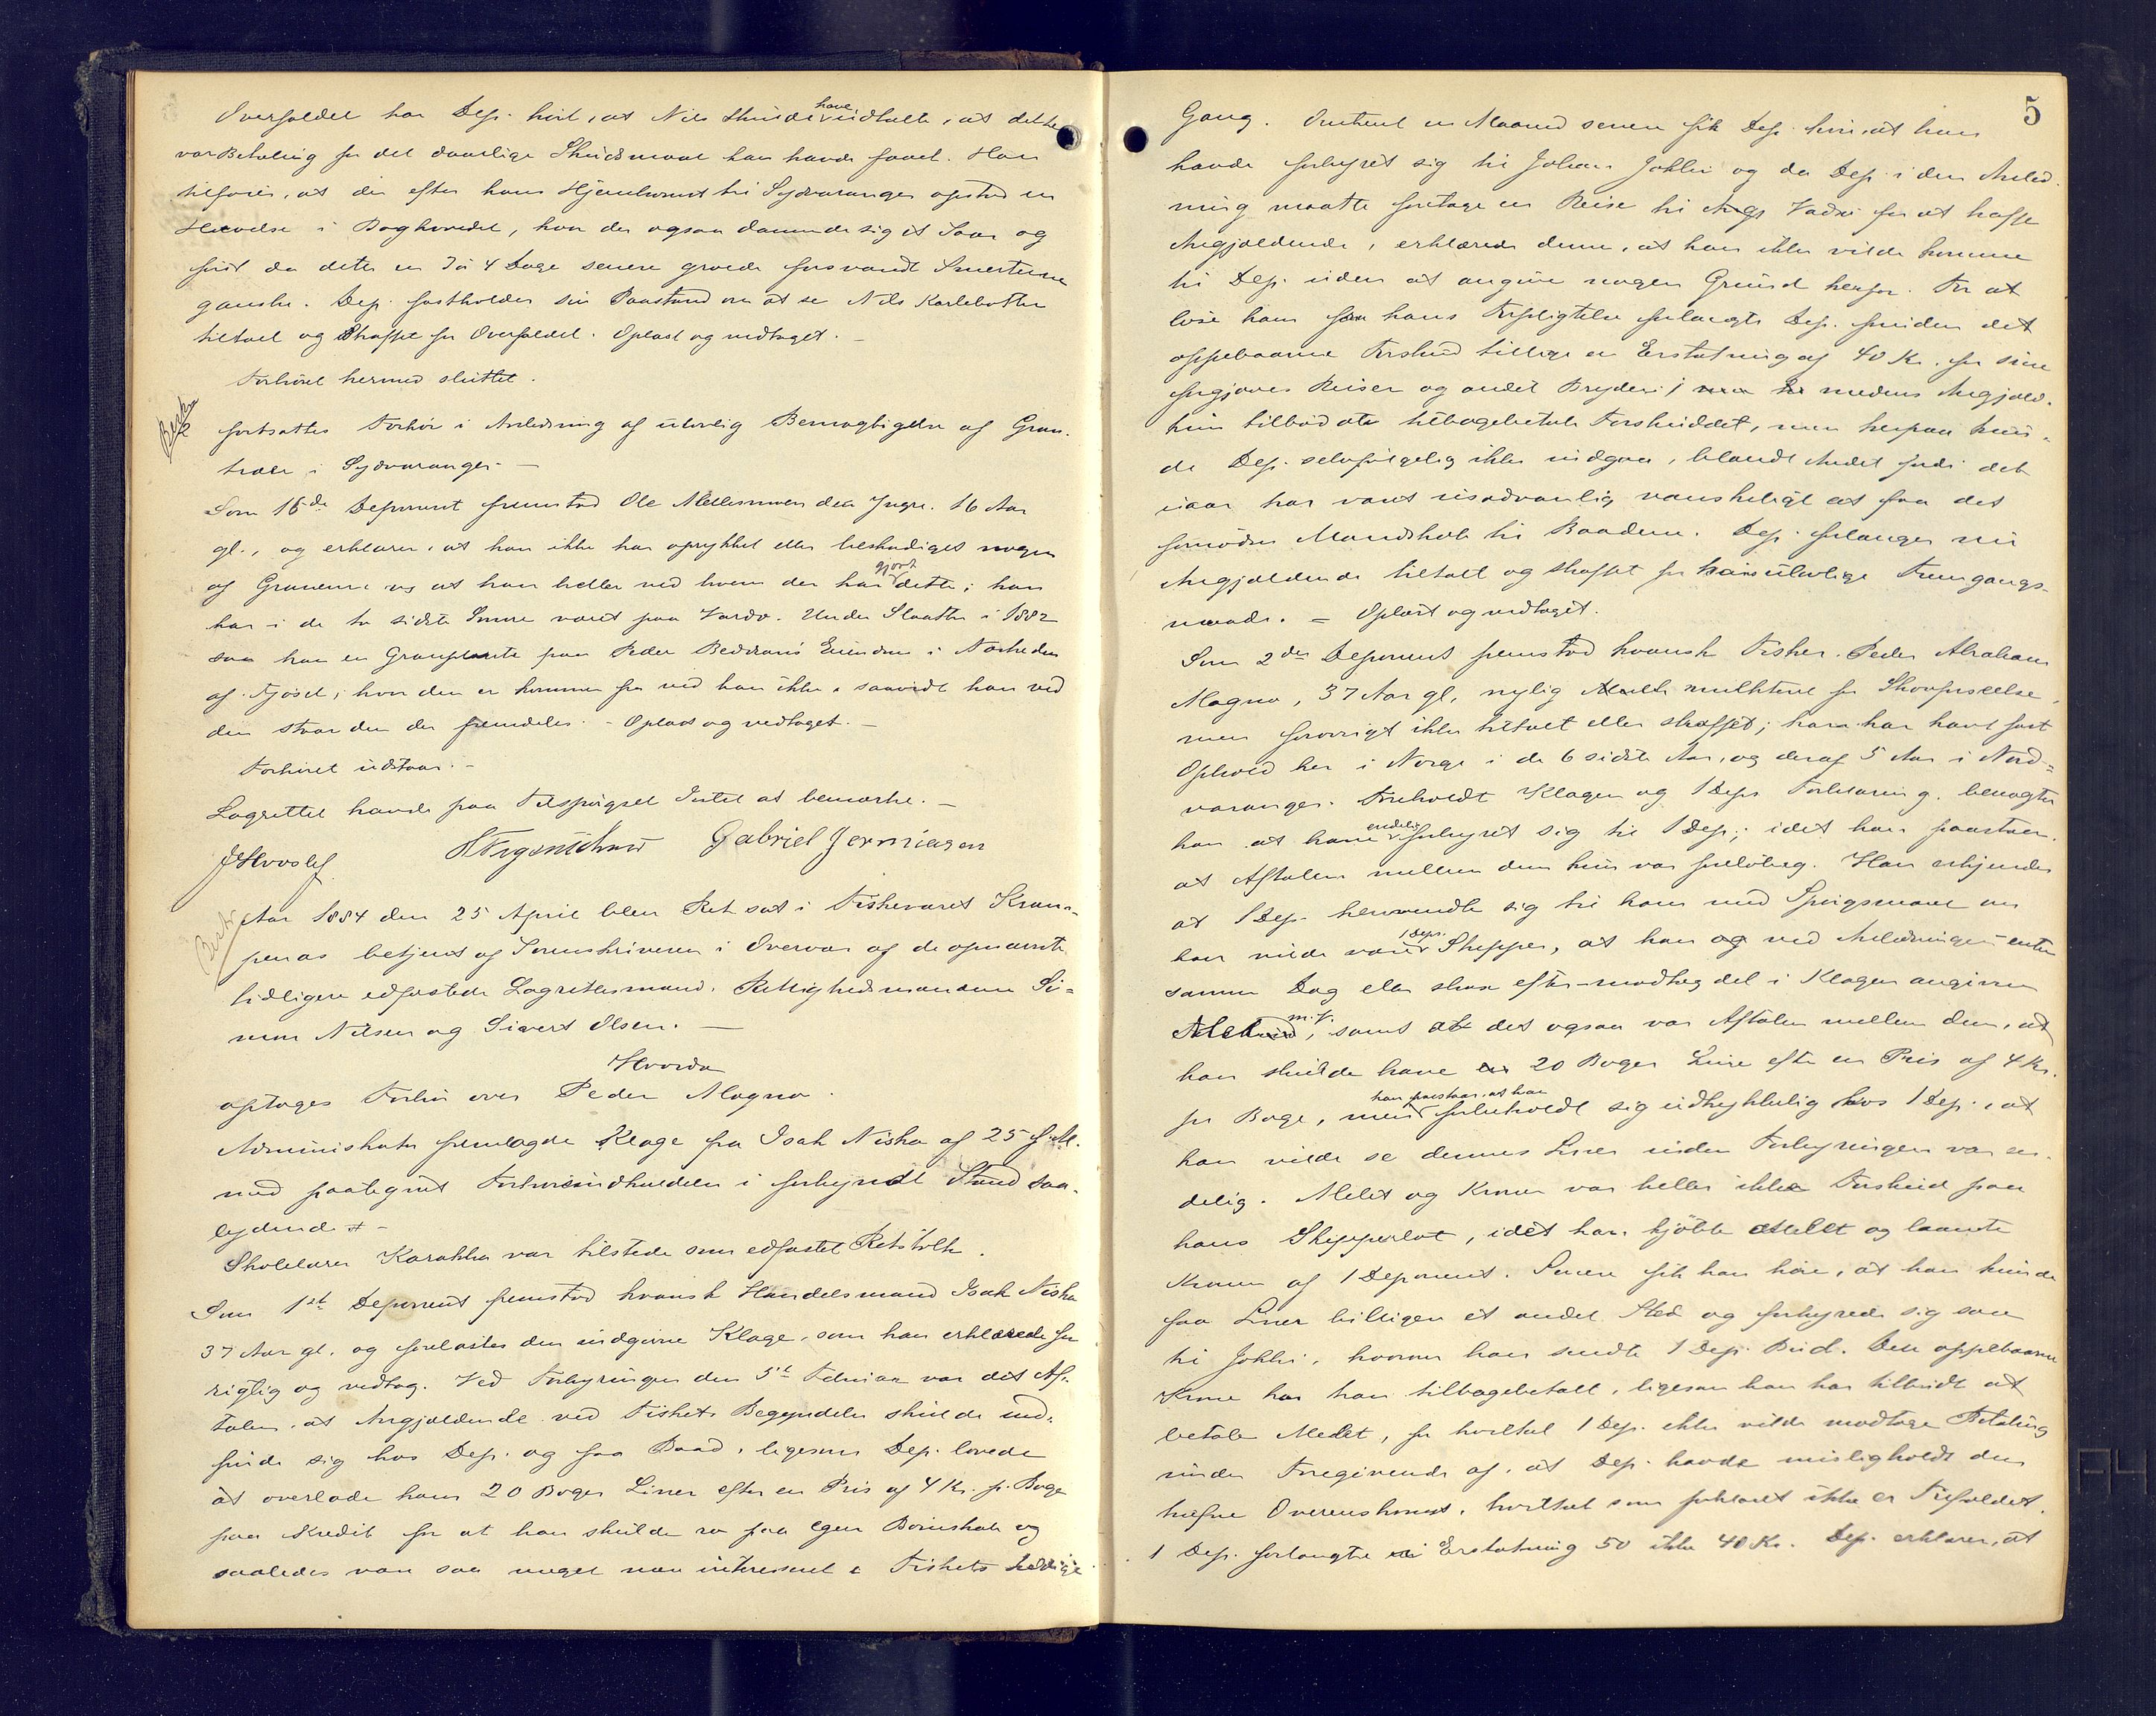 Overfaldet har Dep. hørt, at Nils skulde have udtalt, at dette
var Betaling for det daarlige Skudsmaal han havde faaet. Han
tilføier, at der efter hans Hjemkomst til Sydvaranger opstod en
Hævelse i Baghovedet, hvor der ogsaa dannede sig et Saar og
først da dette en 3 à 4 Dage senere groede forsvandt Smerterne
ganske. Dep. fastholder sin Paastand om at se Nils Karlebotten
tiltalt og straffet for Overfaldet. Oplæst og vedtaget. –
Forhøret hermed sluttet.
fortsattes Forhør i Anledning af ulovlig Bemægtigelse af Gran-
træer i Sydvaranger. –
Som 16de Deponent fremstod Ole Mellesmoen den Yngre. 16 Aar
gl., og erklærer, at han ikke har oprykket eller beskadiget nogen
af Granerne og at han heller ved hvem der har gjort dette; han
har i de to sidste Somre været paa Vardø. Under Slaatten i 1882
saa han en Granplante paa Peder Beddaris Eiendom i Nærheden
af Fjøset; hvor den er kommen fra ved han ikke, saavidt han ved
den staar den der fremdeles. – Oplæst og vedtaget. –
Forhøret udstaar. –
Lagrettet havde paa Tilspørgsel Intet at bemærke. –
Gabriel Jermiasen
Aar 1884 den 25 April blev Ret sat i Fiskeværet Kram-
penæs betjent af Sorenskriveren i Overvær af de opnævnte
tidligere edfæstede Lagrettesmænd, Rettighedsmændene Si-
mon Nilsen og Sivert Olsen. –
Hvorda
optoges Forhør over Peder Magno.
Administrator fremlagde Klage fra Isak Niska af 25 f. M.
med paategnet Forhørsindkaldelse i forkyndt Stand saa-
lydende # –
Skolelærer Karakka var tilstede som edfæstet Retstolk.
Som 1ste Deponent fremstod kvænsk Handelsmand Isak Niska
37 Aar gl. og forelæstes den indgivne Klage, som han erklærede for
rigtig og vedtog. Ved Forhyringen den 5te Februar var det Af-
talen, at Angjældende ved Fiskets Begyndelse skulde ind-
finde sig hos Dep. og faa Baad, ligesom Dep. lovede
at overlade ham 20 Bøger Liner efter en Pris af 4 Kr. pr. Bøge
paa Kredit for at han skulde ro paa egen Bornskab og
saaledes være saa meget mer interesseret i Fiskets heldige
5
Gang. Omtrent en Maaned senere fik Dep. høre, at han
havde forhyret sig til Johan Jokki og da Dep. i den Anled-
ning maatte foretage en Reise til Vadsø for at træffe
Angjældende, erklærede denne, at han ikke vilde komme
til Dep. uden at angive nogen Grund herfor. For at
løse ham fra hans Forpligtelse forlangte Dep. foruden det
oppebaarne Forskud tillige en Erstatning af 40 Kr. for sine
forgjæves Reiser og andet Bryderi, medens Angjæld.
kun tilbød at tilbagebetale Forskuddet, men herpaa kun-
de Dep. selvfølgelig ikke indgaa, blandt Andet fordi det
iaar har været usædvanlig vanskeligt at faa det
fornødne Mandskab til Baadene. Dep. forlanger nu
Angjældende tiltalt og straffet for hans ulovlige Fremgangs-
maade. – Oplæst og vedtaget.
Som 2den Deponent fremstod kvænsk Fisker Peder Abraham
Magno, 37 Aar gl, nylig mulkteret for Skovforseelse,
men forøvrigt ikke tiltalt eller straffet; han har havt fast
Ophold her i Norge i de 6 sidste Aar, og deraf 5 Aar i Nord-
varanger. Foreholdt Klagen og 1 Deps Forklaring, benægter
han at have endelig forhyret sig til 1 Dep.; idet han paastaar
at Aftalen mellem dem kun var foreløbig. Han erkjender
at 1 Dep. henvendte sig til ham med Spørgsmaal om
han vilde være 1 Deps. Skipper, at han og ved Anledningen enten
samme Dag eller strax efter modtog det i Klagen angivne
m. V., samt at det ogsaa var Aftalen mellem dem, at
han skulde have 20 Bøger Line efter en Pris af 4 Kr.
pr Bøge, men han paastaar, at han forbeholdt sig udtrykkelig hos 1 Dep., at
han vilde se dennes Liner inden Forhyringen var en-
delig. Melet og Kronen var heller ikke Forskud paa
hans Skipperlot, idet han kjøbte Melet og laante
Kronen af 1 Deponent. Senere fik han høre, at han kunde
faa Liner billigere et andet Sted og forhyrede sig saa
til Jokki, hvorom han sendte 1 Dep. Bud. Den oppebaarne
Krone har han tilbagebetalt, ligesom han har tilbudt at
betale Melet, for hvilket 1 Dep. ikke vilde modtage Betaling
under Foregivende af, at Dep. havde misligholdt den
trufne Overenskomst, hvilket som forklaret ikke er Tilfældet.
1 Dep. forlangte i Erstatning 50 ikke 40 Kr. Dep. erklærer, at